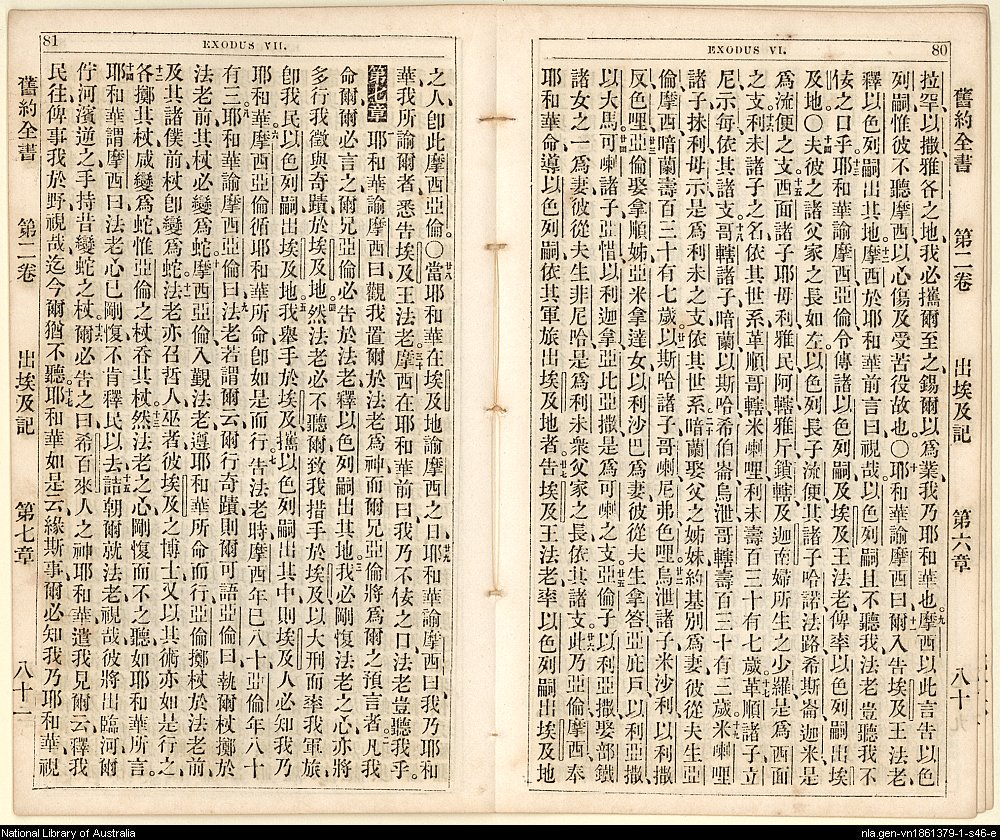 80
EXODUS VI.
舊約全書 第二卷 出埃及記 第六章 八十
拉罕以撒雅各之地我必攜爾至之錫爾以爲業我乃耶和華也九摩西以此言告以色
列嗣惟彼不聽摩西以心傷及受苦役故也〇十耶和華諭摩西曰十一爾入告埃及王法老
釋以色列嗣出其地十二摩西於耶和華前言曰視哉以色列嗣且不聽我法老豈聽我不
佞之口乎十三耶和華諭摩西亞倫令傳諸以色列嗣及埃及王法老俾率以色列嗣出埃
及地〇十四夫彼之諸父家之長如左以色列長子流便其諸子哈諾法路希斯崙迦米是
爲流便之支十五西面諸子耶毋利雅民阿轄雅斤鎖轄及迦南婦所生之少羅是爲西面
之支十六利未諸子之名依其世系革順哥轄米喇哩利未壽百三十有七歲十七革順諸子立
尼示每依其諸支十八哥轄諸子暗蘭以斯哈希伯崙烏泄哥轄壽百三十有三歲十九米喇哩
諸子抹利毋示是爲利未之支依其世系二十暗蘭娶父之姊妹約基別爲妻彼從夫生亞
倫摩西暗蘭壽百三十有七歲廿一以斯哈諸子哥喇尼弗色哩廿二烏泄諸子米沙利以利撒
反色哩廿三亞倫娶拿順姊亞米拿達女以利沙巴爲妻彼從夫生拿答亞庇戶以利亞撒
以大馬廿四可喇諸子亞惜以利迦拿亞比亞撒是爲可喇之支廿五亞倫子以利亞撒娶部鐵
諸女之一爲妻彼從夫生非尼哈是爲利未衆父家之長依其諸支廿六此乃亞倫摩西奉
耶和華命導以色列嗣依其軍旅出埃及地者廿七告埃及王法老率以色列嗣出埃及地
81
EXODUS VII.
之人卽此摩西亞倫〇廿八當耶和華在埃及地諭摩西之日廿九耶和華諭摩西曰我乃耶和
華我所諭爾者悉告埃及王法老三十摩西在耶和華前曰我乃不佞之口法老豈聽我乎
第七章 一耶和華諭摩西曰觀我置爾於法老爲神而爾兄亞倫將爲爾之預言者二凡我
命爾爾必言之爾兄亞倫必告於法老釋以色列嗣出其地三我必剛愎法老之心亦將
多行我徵與奇蹟於埃及地四然法老必不聽爾致我措手於埃及以大刑而率我軍旅
卽我民以色列嗣出埃及地五我舉手於埃及攜以色列嗣出其中則埃及人必知我乃
耶和華六摩西亞倫循耶和華所命卽如是而行七告法老時摩西年已八十亞倫年八十
有三八耶和華諭摩西亞倫曰九法老若謂爾云爾行奇蹟則爾可語亞倫曰執爾杖擲於
法老前其杖必變爲蛇十摩西亞倫入覲法老遵耶和華所命而行亞倫擲杖於法老前
及其諸僕前杖卽變爲蛇十一法老亦召哲人巫者彼埃及之博士又以其術亦如是行之
十二各擲其杖咸變爲蛇惟亞倫之杖吞其杖十三然法老之心剛愎而不之聽如耶和華所言
十四耶和華謂摩西曰法老心已剛愎不肯釋民以去十五詰朝爾就法老視哉彼將出臨河爾
佇河濱逆之手持昔變蛇之杖十六爾必告之曰希百來人之神耶和華遣我見爾云釋我
民往俾事我於野視哉迄今爾猶不聽十七耶和華如是云緣斯事爾必知我乃耶和華視
舊約全書 第二卷 出埃及記 第七章 八十一
National Library of Australia
nla.gen-vn1861379-1-s46-e